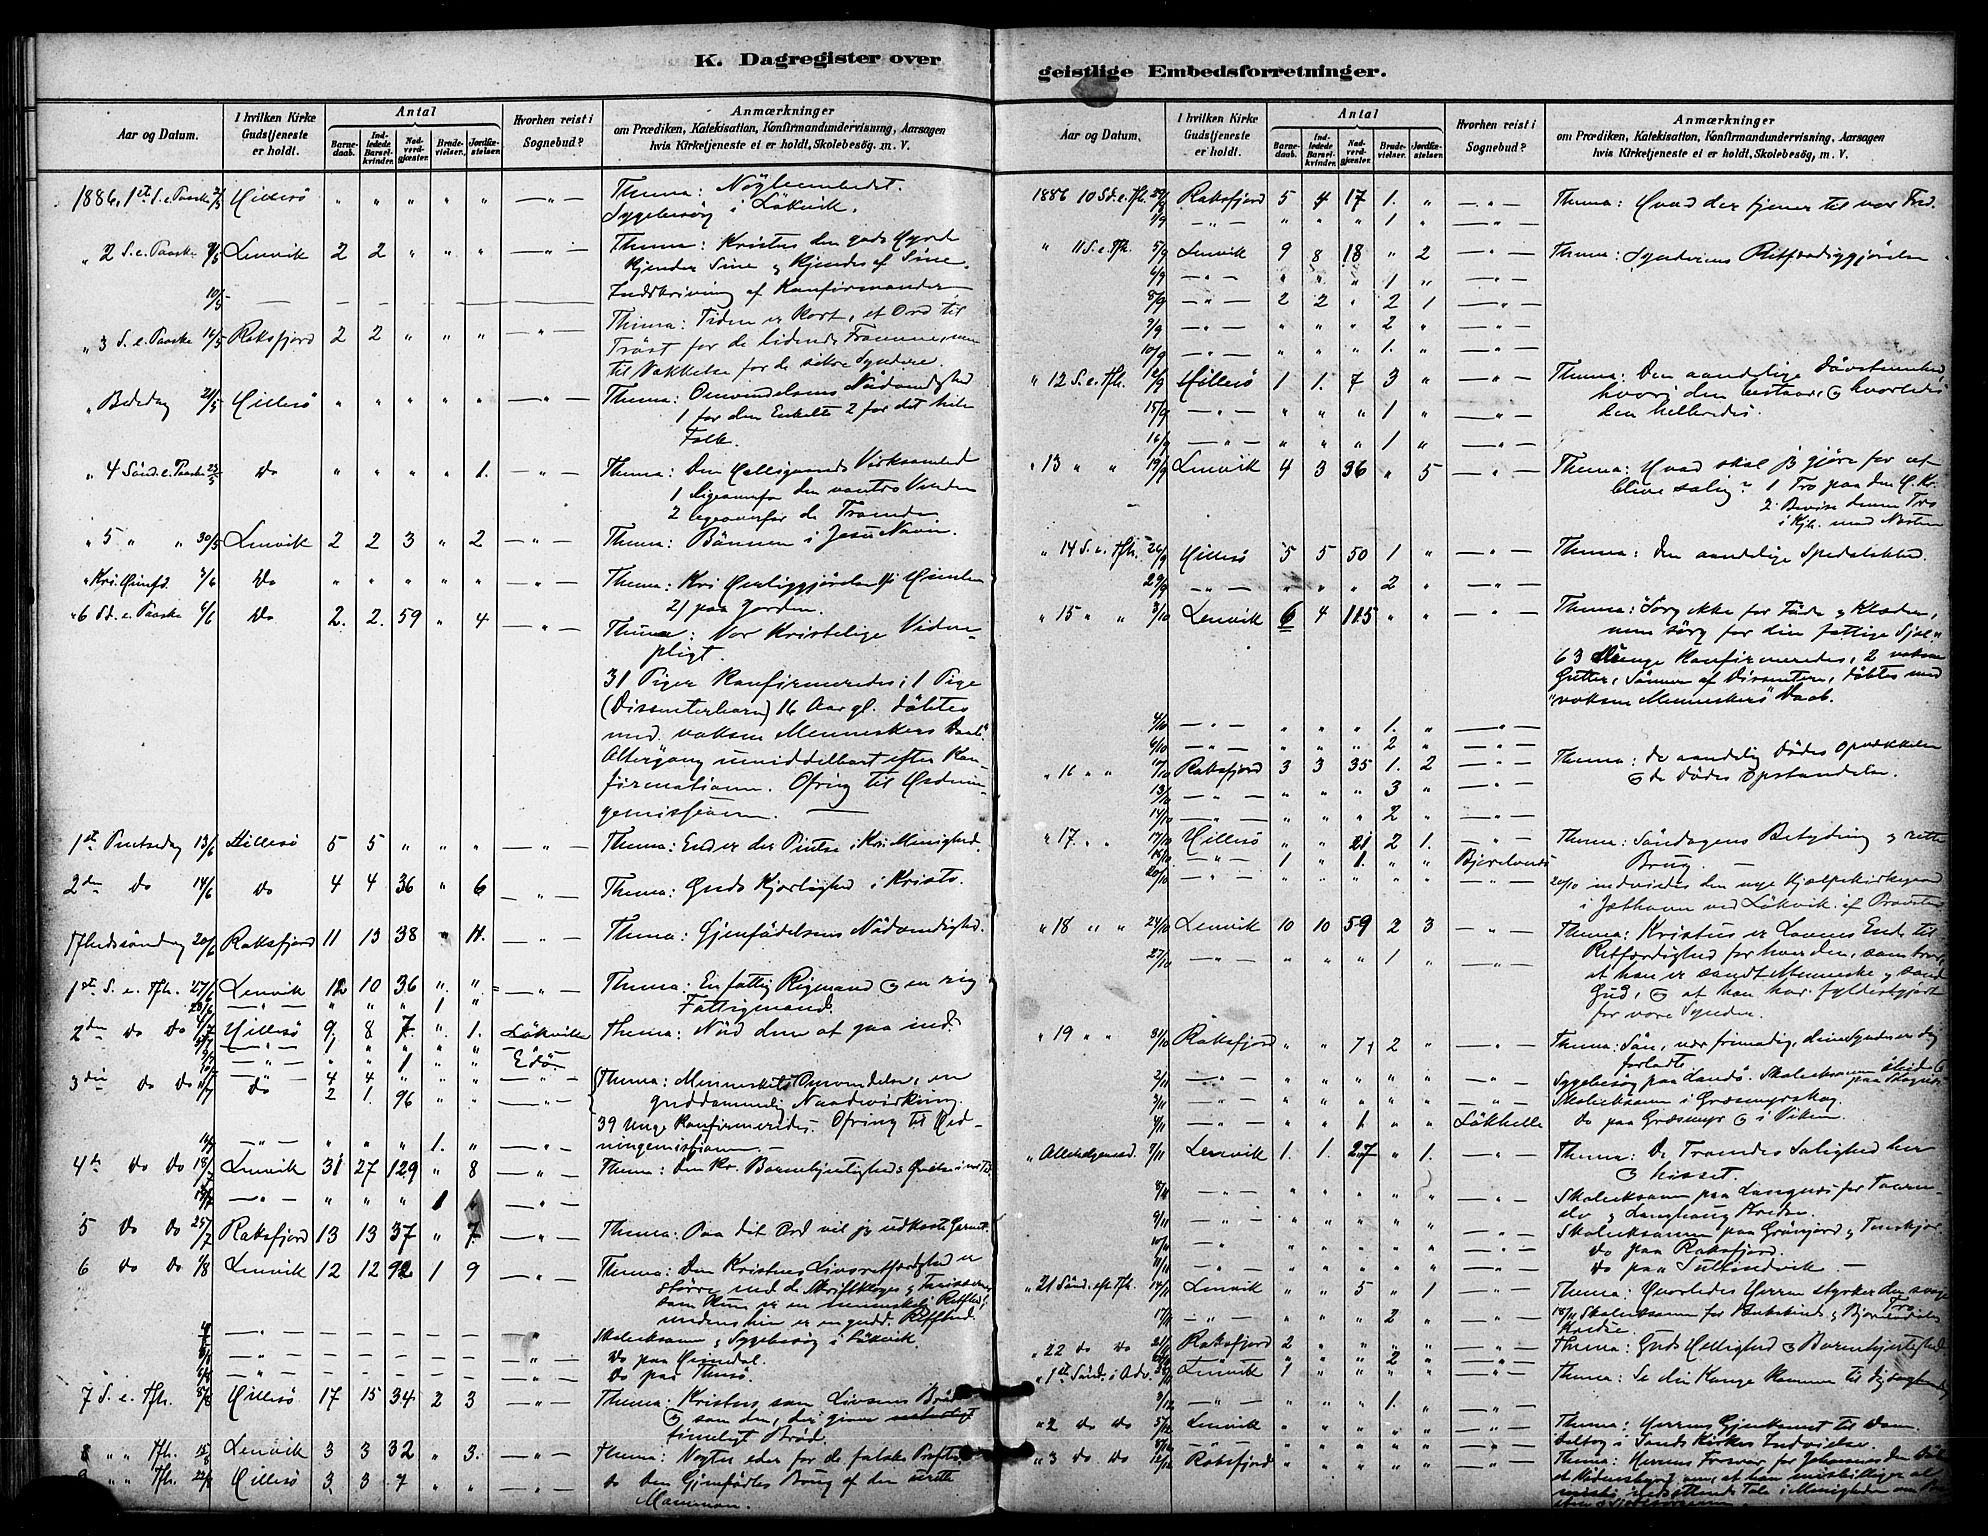 K. Dagregister over
Aar og Datum.
I hvilken Kirke Gudstjeneste er holdt.
Antal
Barnedaab.
Indledede Barselkvinder.
Nadverdgjester.
Brudevielser.
Jordfæstelser.
Hvorhen reist i Sognebud?
Anmærkninger
om Prædiken, Katekisation, Konfirmandundervisning, Aarsagen
hvis Kirketjeneste ei er holdt, Skolebesøg, m. V.
1886, 1st S. e. Paaske 2/5 Hillesö " " " " " — " — Thema: Nögleembedet.
Sygebesög i Lökvik.
" 2 S. e. Paaske 9/5 Lenvik 2 2 " " " — " — Thema: Kristus den gode Hyrde
Kjender Sine og Kjendes af Sine.
10/5 — — — — — — Indskrivning af Konfirmander
" 3 S. e. Paaske 16/5 Raksfjord 2 2 " " " — " — Thema: Tiden er kort, et Ord til
Tröst for de lidende Fromme, men
til Vækkelse for de sikre Syndere.
" Bededag 21/5 Hillesö " " " " " — " — Thema: Omvendelsens Nödvendighed
1 for den Enkelte 2 for det hele
Folk.
" 4 Sönd. e. Paaske 23/5 Do " " " " 1. — " — Thema: Den Helligaands Virksomhed
1 ligeoverfor den vantro Verden
2 ligeoverfor de Troende
" 5 " " 30/5 Lenvik 2 2 3 " 2 — " — Thema: Bönnen i Jesu Navn.
" Kri. Himfd. 3/6 Do " " " " " — " — Thema: Kri Herliggjörelse 1) i Himlen
2) paa Jorden.
" 6 Sd. e. Paaske 6/6 Do 2. 2. 59 " 4 — " — Thema: Vor Kristelige Vidne-
pligt.
31 Piger Konfirmeredes; 1 Pige
(Dissenterbarn) 16 Aar gl. döbtes
med voksne Menneskers Daab.
Altergang umiddelbart efter Kon-
firmationen. Ofring til Hednin-
gemissionen. —
1st Pintsedag 13/6 Hillesö 5 5 " " " — " — Thema: End er der Pintse i Kri. Menighed.
2den Do 14/6 Do 4 4 36 " 6 — " — Thema: Guds Kjærlighed i Kristo.
Thedssöndag 20/6 Raksfjord 11 13 38 " 11. — " — Thema: Gjenfödelsens Nödvendighed.
1st S. e. Tfh. 27/6 Lenvik 12 10 36 " " — " — Thema: En fattig Rigmand og en rig
28/6 — " — " " " 1 " Fattigmand.
2den Do Do 4/7 Hillesö 9 8 7 " 1. Lökvik Thema: Nöd dem at gaa ind.
— " — 1 " " " " Edö.
— " — " " 1 " "
3die Do Do 11/7 Do 2 1. 96 " " — " — Thema: Menneskets Omvendelse, en
guddommelig Naadevirkning.
39 Unge Konfirmeredes. Ofring til Hed-
— " — " " " 1. " — " — ningemissionen —
4de Do Do 18/7 Lenvik 31 27 129 " 8 — " —
— " — " " " 1 " — " —
5 Do Do 25/7 Raksfjord 13 13 37 " 7. — " — Thema: Paa dit Ord vil jeg udkaste Garnet.
6 Do Do 1/8 Lenvik 12 12 92 1 9 — " — Thema: Den Kristnes Livsretfærdighed er
större end de Skriftkloges og Farisæernes
Skoleeksamen og Sygebesög i Lökvik.
Do paa
Do paa
7 S. e. Tfh. 8/8 Hillesö 17 15 34 2 3 — " — Thema: Kristus som Livsens Bröd
og som den, der giver naturligt
timeligt Bröd.
8 " " Tfh. 15/8 Lenvik 3 3 32 " 3. — " — Thema: Vogter eder for de falske Profeter
9 " " Tfh. 22/8 Hillesö 3 3 7 " " — " — do Den Gjenfödtes Brug af den urette
Mammon.
geistlige Embedsforretninger.
Aar og Datum.
I hvilken Kirke Gudstjeneste er holdt.
Antal
Barnedaab.
Indledede Barselkvinder.
Nadverdgjester.
Brudevielser.
Jordfæstelser.
Hvorhen reist i Sognebud?
Anmærkninger
om Prædiken, Katekisation, Konfirmandundervisning, Aarsagen
hvis Kirketjeneste ei er holdt, Skolebesøg, m. V.
1886 10 Sd. e. Tfh. 29/8 Raksfjord 5 4 17 1. " — " — Thema: Hvad der tjener til vor Fred.
1/9 — " — " " " 1 " — " —
" 11 S. e. Tfh. 5/9 Lenvik 9 8 18 " 2 — " — Thema: Synderens Retfærdiggjörelse
6/9 — " — " " " 1 " — " —
8/9 — " — 2 2 " 2 1 — " —
9/9 — " — " " " 2 " — " —
10/9 — " — " " " 1. " — " —
" 12 S. e. Tfh. 12/9 Hillesö 1 1. 7 3 " — " — Thema: Den aandelige Dövstumhed,
hvori den bestaar og hvorledes
15/9 — " — " " " 1 " — " — den helbredes.
16/9 — " — " " " 1 " — " —
" 13 " " 19/9 Lenvik 4 3 36 " 5 — " — Thema: Hvad skal jeg gjöre for at
blive salig? 1 Tro paa den H. Kr.
2. Bevise denne Tro
i Kjh. mod Næsten
" 14 S. e. Tfh. 26/9 Hillesö 5 5 50 1 " — " — Thema: Den aandelige Spedalskhed.
29/9 — " — " " " 2 " — " —
" 15 " " 3/10 Lenvik 6 4 115 " " — " — Thema: "Sörg ikke for Föde og Klæder,
men sörg for din fattige Sjæl"
63 Unge Konfirmeredes, 2 voksne
Gutter, Sönner af Dissentere, döbtes med
"voksne Menneskers" Daab.
4/10 — " — " " " 1. " — " —
6/10 — " — " " " 2 " — " —
" 16 " " 10/10 Raksfjord 3 3 35 1. 2 — " — Thema: De aandelig Dödes Opvækkelse
og de Dödes Opstandelse.
13/10 — " — " " " 3 " — " —
14/10 — " — " " " 2 " — " —
" 17 " " 17/10 Hillesö " " 21 2 1. — " — Thema: Söndagens Betydning og rette
— " — 1 " 1. " " Brug —
20/10 " " " " " — " — 20/10 indviedes den nye Hjælpekirkegaard
i ved Lökvik af Provsten
" 18 " " 24/10 Lenvik 10 10 59 2 3 — " — Thema: Kristus er Lovens Ende til
27/10 — " — " " " 1 " — " — Retfærdighed for hver den, som tror,
at han er sandt Menneske og sand
Gud, og at han har fyldestgjort
for vore Synder.
" 19 " " 31/10 Raksfjord " " 7 2 " — " — Thema: Sön, vær frimodig, dine Synder ere dig
forladte
2/11 — " — " " " " " — " — Sygebesög paa Sandö. Skoleeksamen
3/11 — " — " " " " " — " — Skoleeksamen i Græsmyrskog.
4/11 — " — " " 1 " " Lökhelle Do paa Græsmyr og i Viken.
" Allehelgensd. 7/11 Lenvik 1. 1. 27 " 1. — " — Thema: De Troendes Salighed her
og hisset.
8/11 — " — " " " " " — " — Skoleeksamen paa Langnes for
og Langhaug Kredse.
9/11 — " — " " " " " — " — Skoleeksamen paa
10/11 — " — " " " " " — " — Do paa Raksfjord.
11/11 — " — " " " " " — " — Do paa Sultindvik —
" 21 Sönd. eft. Tfh. 14/11 Lenvik " " 5 " 1 — " — Thema: Hvorledes Herren styrker den svage
Tro
17/11 — " — " " " 2 " — " — 18/11 Skoleeksamen for
Kredse.
" 22 Do Do 21/11 Raksfjord 2 " " " " — " — Thema: Guds Hellighed og Barmhjertighed
" 1st Sönd. i Adv. Lenvik 1 " " " " — " — Thema: Se din Konge kommer til dig
3/12 — " — " " " 1. " — " —
" 2 Do Do 5/12 Lenvik " " " " " — " — Thema: Herrens Gjenkomst til Dom.
Deltog i Sands Kirkes Indvielse.
" 3 Do Do 12/12 Raksfjord " " " " " — " — Thema: Herrens Forsvar for Johannes den Döber